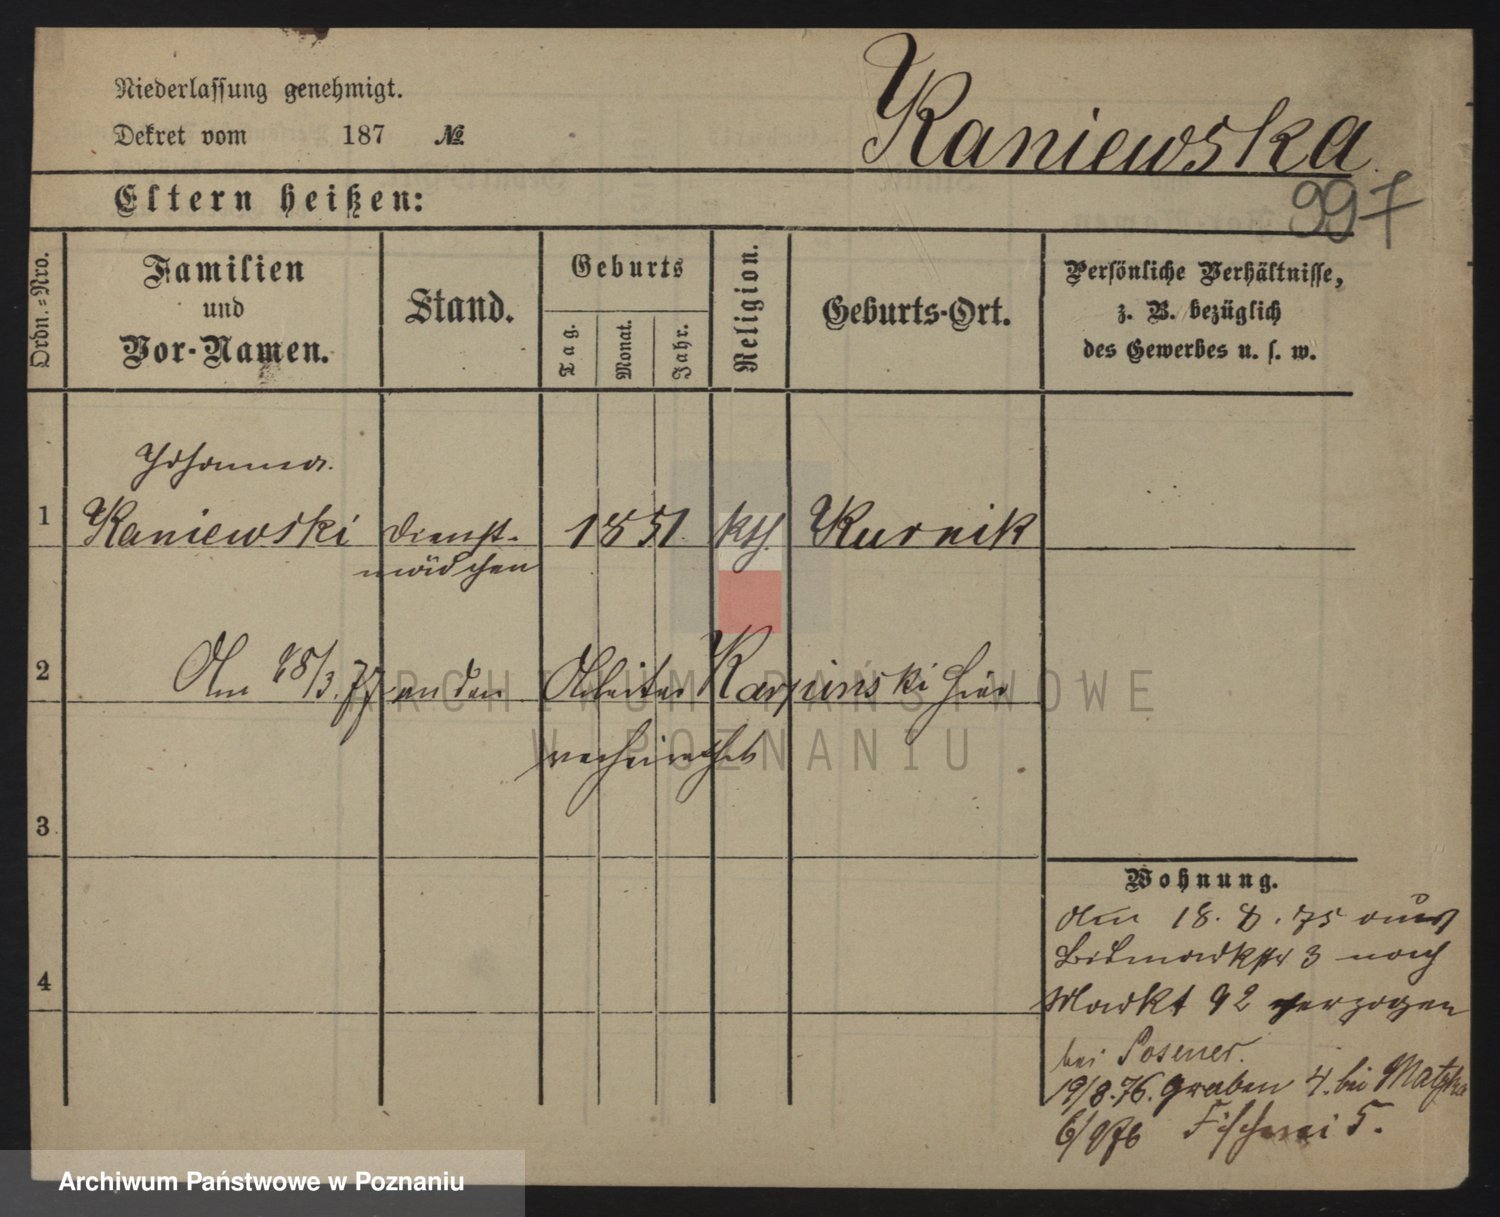 Niederlassung genehmigt.
Dekret vom 187 №
Kaniewska
997
Eltern heißen:
Ordn.=Nro.
Familien
und
Vor-Namen.
Stand.
Geburts
Tag.
Monat.
Jahr.
Religion.
Geburts-Ort.
Persönliche Verhältnisse,
z. B. bezüglich
des Gewerbes u. s. w.
Johanna
1 Kaniewski Dienst- 1851. kth. Kurnik
mädchen
2 Am 28/3.77 an den Arbeiter Karpinski hier
verheirathet
3
4
Wohnung.
Am 18. 8. 75 aus
Bismarckstr 3 nach
Markt 92 verzogen
bei Posener.
19/8.76. Graben 4. bei Matzka
6/976 Fischerei 5.
ARCHIWUM PAŃSTWOWE
W POZNANIU
Archiwum Państwowe w Poznaniu